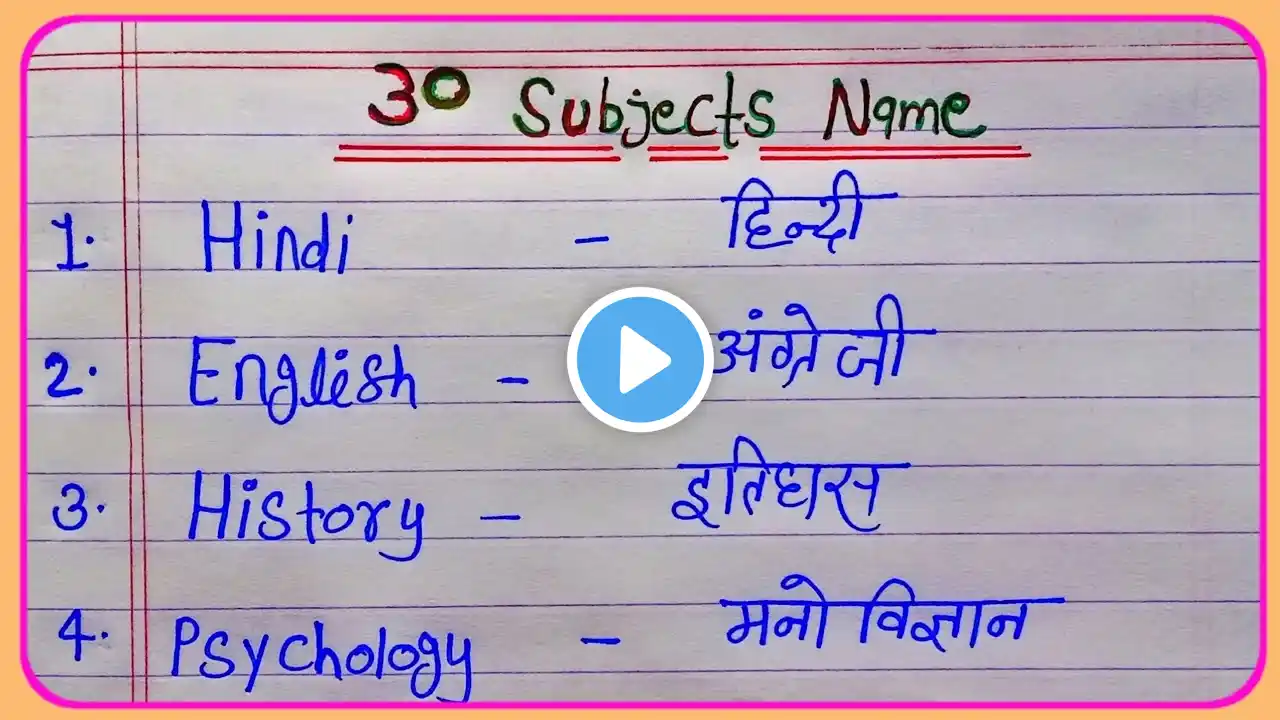 30 Subjects Name
1. Hindi - हिन्दी
2. English - अंग्रेजी
3. History - इतिहास
4. Psychology - मनोविज्ञान